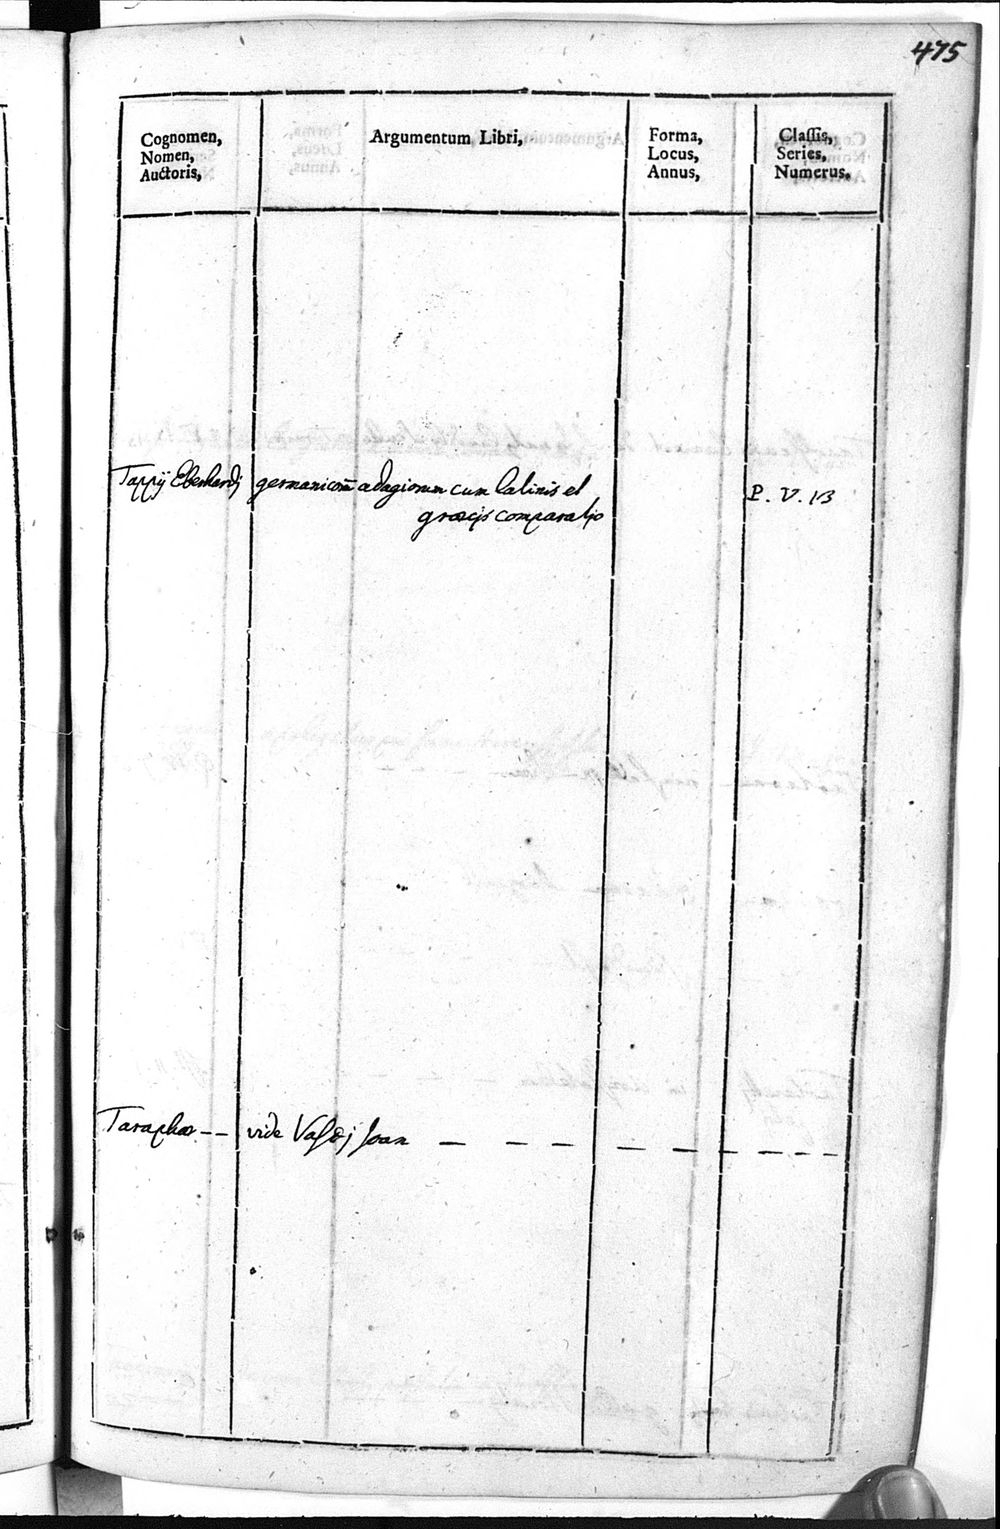 475
Cognomen,
Nomen,
Auctoris,
Argumentum Libri,
Forma,
Locus,
Annus,
Claſſis,
Series,
Numerus.
Tappÿ Eberhardj germanicoru̅ adagiorum cum latinis et P. V. 13
græcis comparatio
Tarapha - - vide Vasæj Joan - - - - - - - - - -